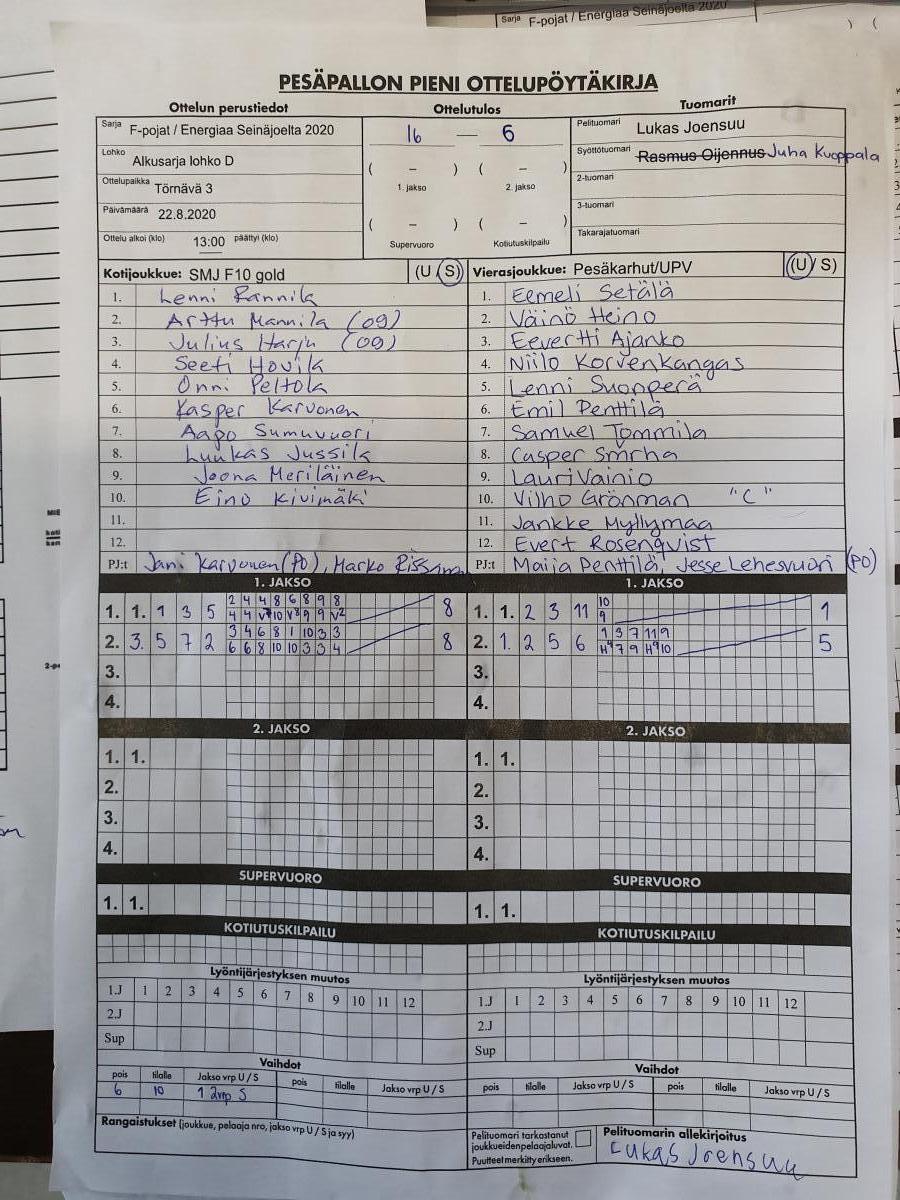 Sarja F-pojat / Energiaa Seinäjoelta 2020
PESÄPALLON PIENI OTTELUPÖYTÄKIRJA
Ottelun perustiedot Ottelutulos Tuomarit
Sarja F-pojat / Energiaa Seinäjoelta 2020 16 — 6 Pelituomari Lukas Joensuu
Lohko Alkusarja lohko D ( – ) ( – ) Syöttötuomari Rasmus Oijennus Juha Kuoppala
Ottelupaikka Törnävä 3 1. jakso 2. jakso 2-tuomari
Päivämäärä 22.8.2020 ( – ) ( – ) 3-tuomari
Ottelu alkoi (klo) 13:00 päättyi (klo) Supervuoro Kotiutuskilpailu Takarajatuomari
Kotijoukkue: SMJ F10 gold (U S) Vierasjoukkue: Pesäkarhut/UPV (U / S)
1. Lenni Rannila 1. Eemeli Setälä
2. Arttu Mannila (09) 2. Väinö Heino
3. Julius Harju (09) 3. Eevertti Ajanko
4. Seeti Hovila 4. Niilo Korvenkangas
5. Onni Peltola 5. Lenni Suoperä
6. Kasper Karvonen 6. Emil Penttilä
7. Aapo Sumuvuori 7. Samuel Tommila
8. Luukas Jussila 8. Casper Smrha
9. Joona Meriläinen 9. Lauri Vainio
10. Eino Kivimäki 10. Vilho Grönman "C"
11. 11. Jankke Myllymaa
12. 12. Evert Rosenqvist
PJ:t Jani Karvonen (PO), Marko Rissanen PJ:t Maija Penttilä, Jesse Lehesvuori (PO)
1. JAKSO 1. JAKSO
2 4 4 8 6 8 9 8 10
1. 1. 1 3 5 8 1. 1. 2 3 11 1
4 4 10 9 9 V2 9
3 4 6 8 1 10 3 3 1 3 7 11 9
2. 3. 5 7 2 8 2. 1. 2 5 6 5
6 6 8 10 10 3 3 4 H4 7 9 H9 10
3. 3.
4. 4.
2. JAKSO 2. JAKSO
1. 1. 1. 1.
2. 2.
3. 3.
4. 4.
SUPERVUORO SUPERVUORO
1. 1. 1. 1.
KOTIUTUSKILPAILU KOTIUTUSKILPAILU
Lyöntijärjestyksen muutos Lyöntijärjestyksen muutos
1.J 1 2 3 4 5 6 7 8 9 10 11 12 1.J 1 2 3 4 5 6 7 8 9 10 11 12
2.J 2.J
Sup Sup
Vaihdot Vaihdot
pois tilalle Jakso vrp U / S pois tilalle Jakso vrp U / S pois tilalle Jakso vrp U / S pois tilalle Jakso vrp U / S
6 10 1 2vrp S
Rangaistukset (joukkue, pelaaja nro, jakso vrp U / S ja syy) Pelituomari tarkastanut Pelituomarin allekirjoitus
joukkueidenpelaajaluvat. Lukas Joensuu
Puutteet merkitty erikseen.